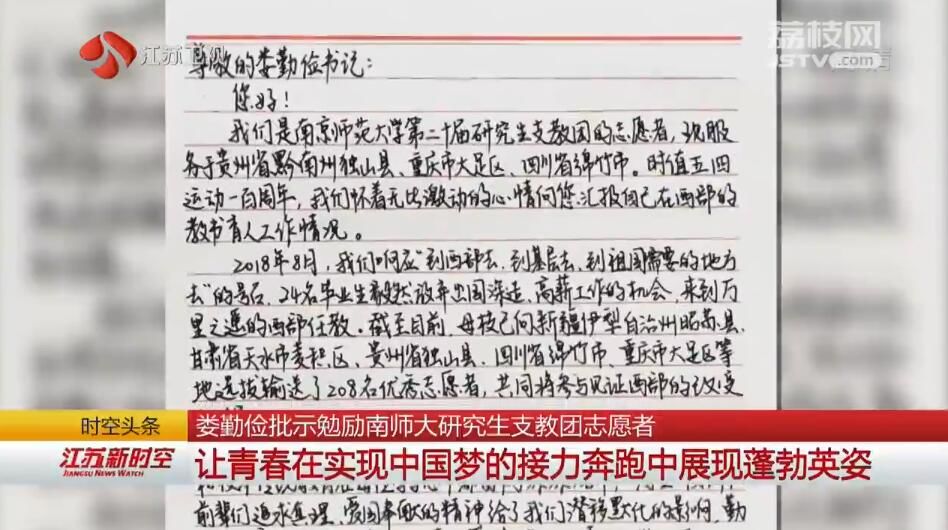 江苏卫视
荔枝网
JSTV.com
尊敬的娄勤俭书记：
您好！
我们是南京师范大学第二十届研究生支教团的志愿者，现服
务于贵州省黔南州独山县、重庆市大足区、四川省绵竹市。时值五四
运动一百周年，我们怀着无比激动的心情向您汇报自己在西部的
教书育人工作情况。
2018年8月，我们响应“到西部去，到基层去，到祖国需要的地方
去”的号召，24名毕业生毅然放弃出国深造、高薪工作的机会，来到万
里之遥的西部任教。截至目前，母校已向新疆伊犁自治州昭苏县、
甘肃省天水市麦积区、贵州省独山县、四川省绵竹市、重庆市大足区等
地选拔输送了208名优秀志愿者，共同将参与见证西部的改变
时空头条
娄勤俭批示勉励南师大研究生支教团志愿者
江苏新时空
JIANGSU NEWS WATCH
让青春在实现中国梦的接力奔跑中展现蓬勃英姿
前辈们追求真理、爱国奉献的精神给了我们潜移默化的影响，勤